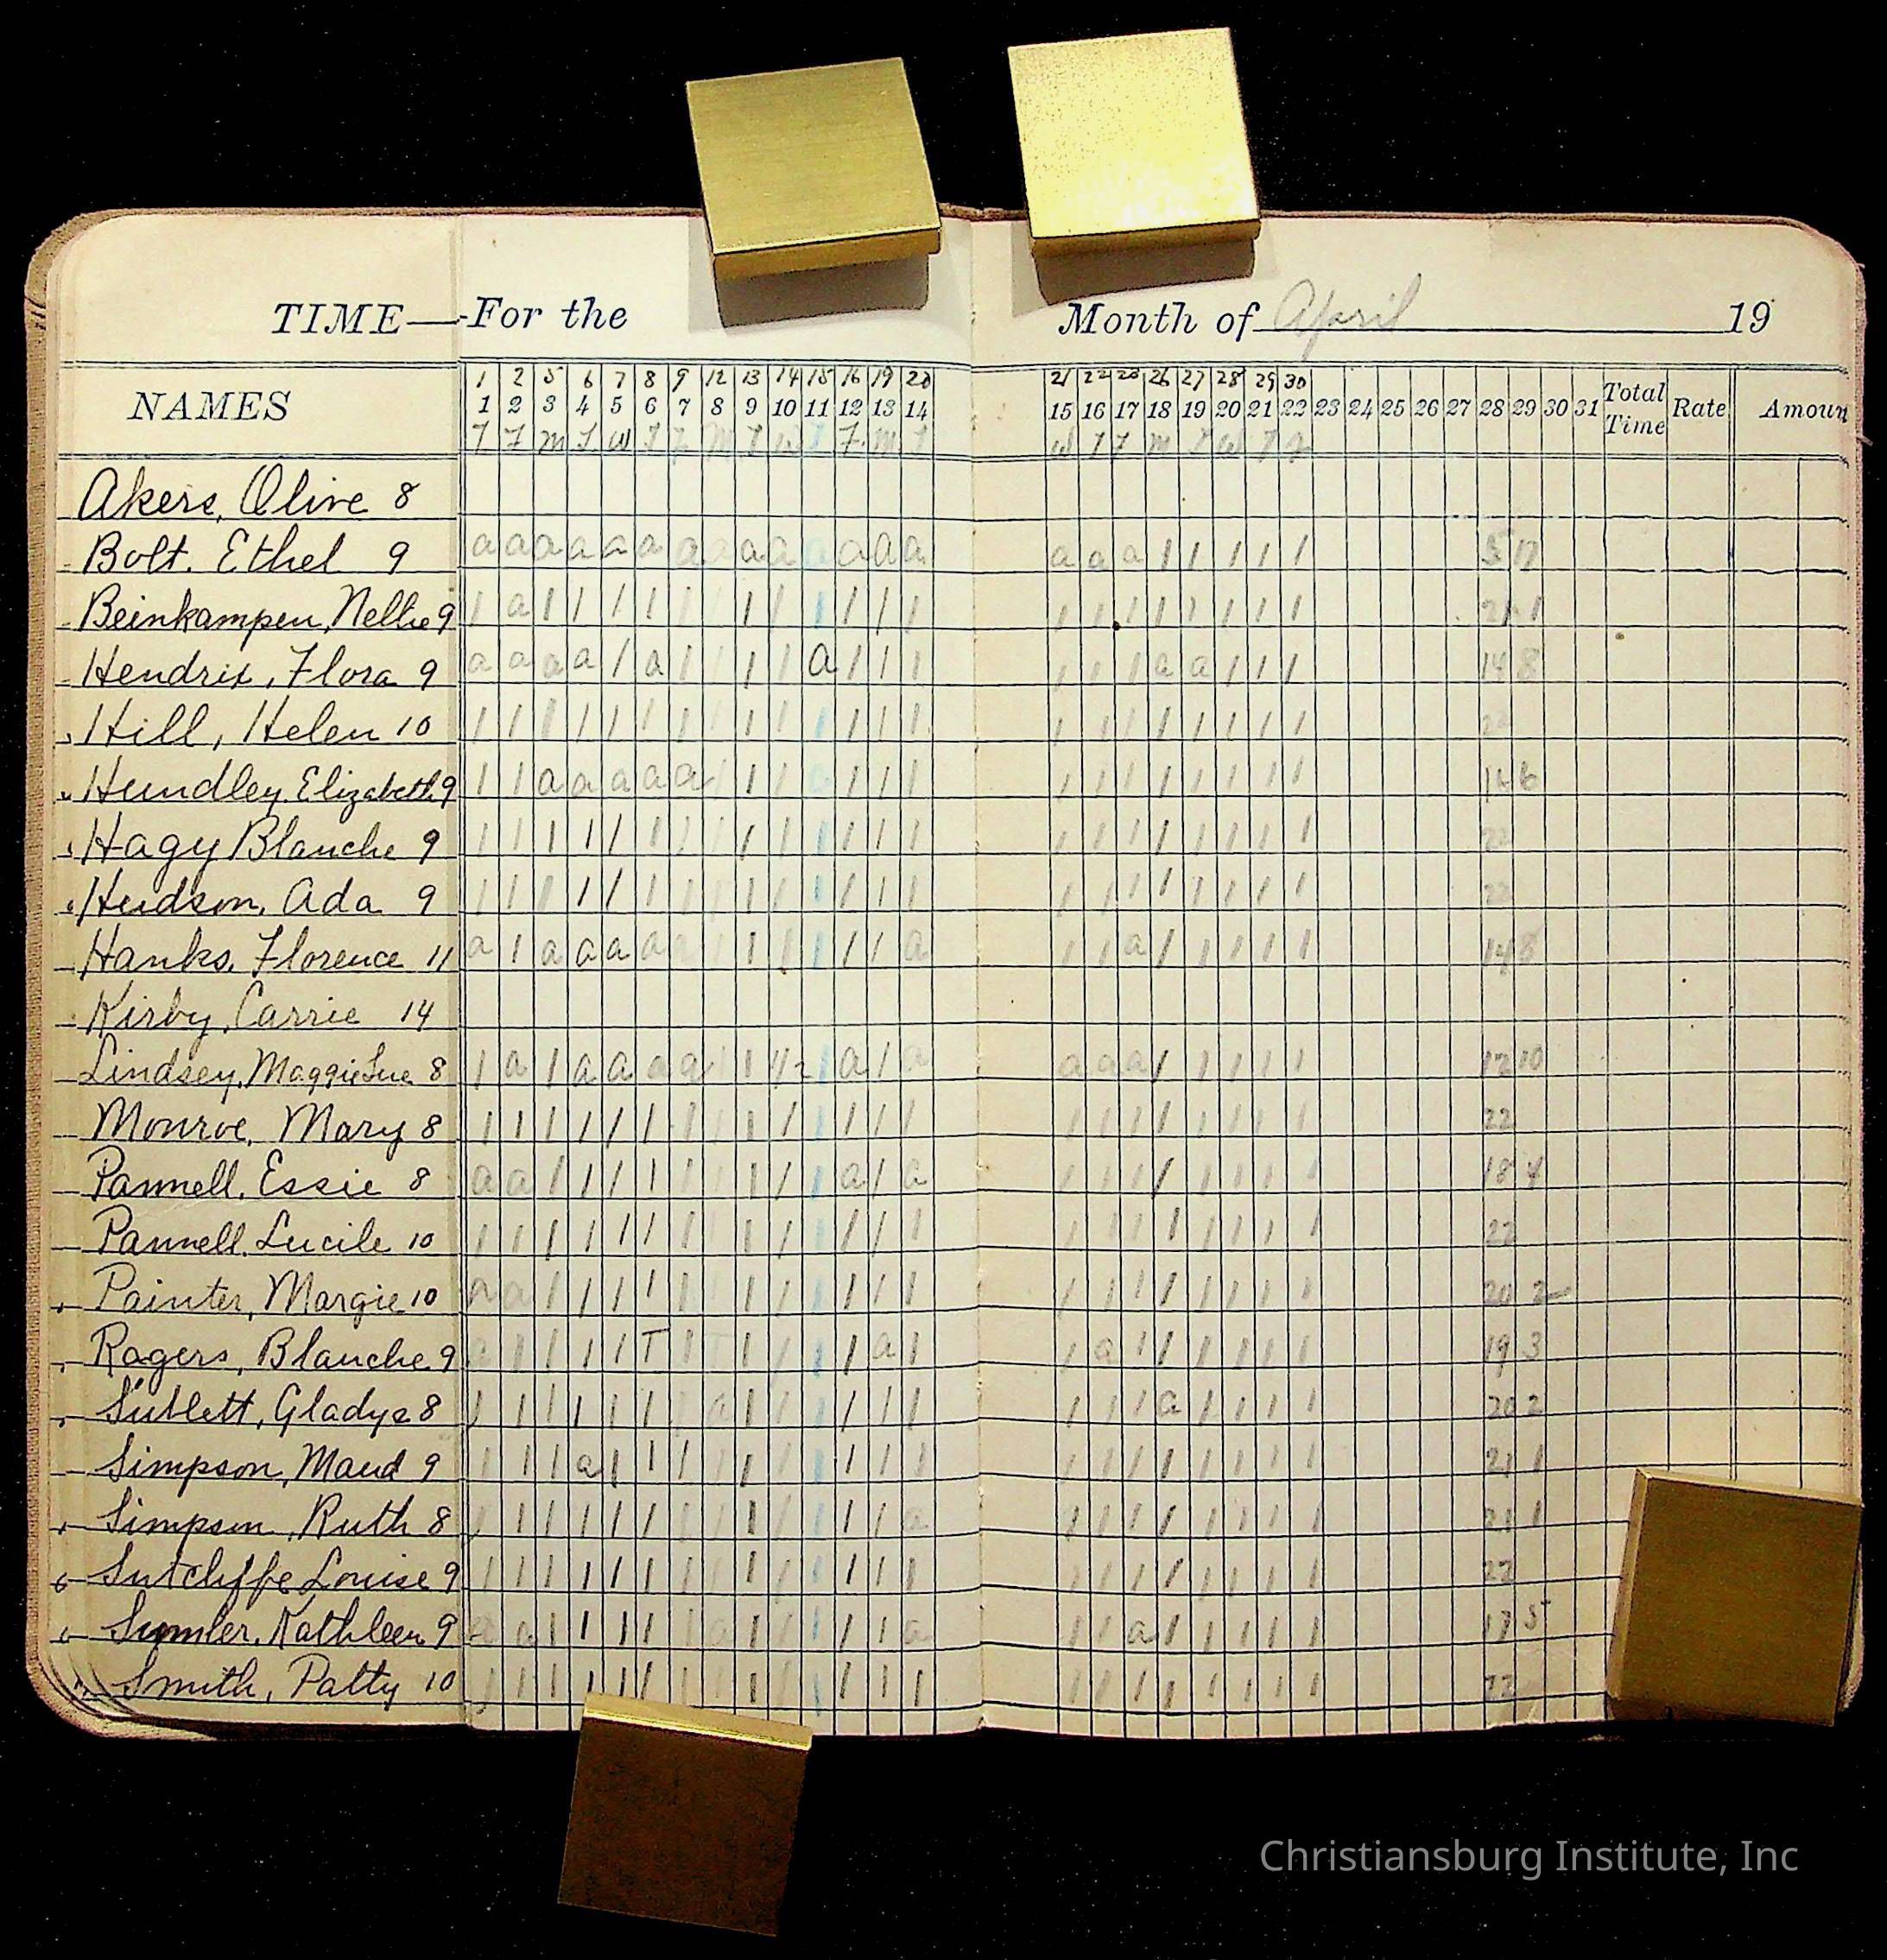 TIME—For the Month of April 19
NAMES 1 2 5 6 7 8 9 12 13 14 15 16 19 20 21 22 23 26 27 28 29 30
1 2 3 4 5 6 7 8 9 10 11 12 13 14 15 16 17 18 19 20 21 22 23 24 25 26 27 28 29 30 31 Total Time Rate Amoun
T F M T W T F M T W T F M T W T F M T W T F
Akers, Olive 8
Bolt. Ethel 9 a a a a a a a a a a a a a a a a a / / / / / 5 17
Beinkampen, Nellie 9 / a / / / / / / / / / / / / / / / / / / / / 21 1
Hendrix, Flora 9 a a a a / a / / / / a / / / / / / a a / / / 14 8
Hill, Helen 10 / / / / / / / / / / / / / / / / / / / / / / 22
Hundley, Elizabeth 9 / / a a a a a / / / a / / / / / / / / / / / 16 6
Hagy Blanche 9 / / / / / / / / / / / / / / / / / / / / / / 22
Hudson, Ada 9 / / / / / / / / / / / / / / / / / / / / / / 22
Hanks, Florence 11 a / a a a a a / / / / / / a / / a / / / / / 14 8
Kirby, Carrie 14
Lindsey, Maggie Sue 8 / a / a a a a / / 1/2 / a / a a a a / / / / / 12 10
Monroe, Mary 8 / / / / / / / / / / / / / / / / / / / / / / 22
Pannell, Essie 8 a a / / / / / / / / / a / a / / / / / / / / 18 4
Pannell, Lucile 10 / / / / / / / / / / / / / / / / / / / / / / 22
Painter, Margie 10 a a / / / / / / / / / / / / / / / / / / / / 20 2
Rogers, Blanche 9 a / / / / T / T / / / / a / / a / / / / / / 19 3
Sublett, Gladys 8 / / / / / / / a / / / / / / / / / a / / / / 20 2
Simpson, Maud 9 / / / a / / / / / / / / / / / / / / / / / / 21 1
Simpson, Ruth 8 / / / / / / / / / / / / / a / / / / / / / / 21 1
Sutcliffe Louise 9 / / / / / / / / / / / / / / / / / / / / / / 22
Sumler, Kathleen 9 a a / / / / / a / / / / / a / / a / / / / / 17 5
Smith, Patty 10 / / / / / / / / / / / / / / / / / / / / / / 22
Christiansburg Institute, Inc